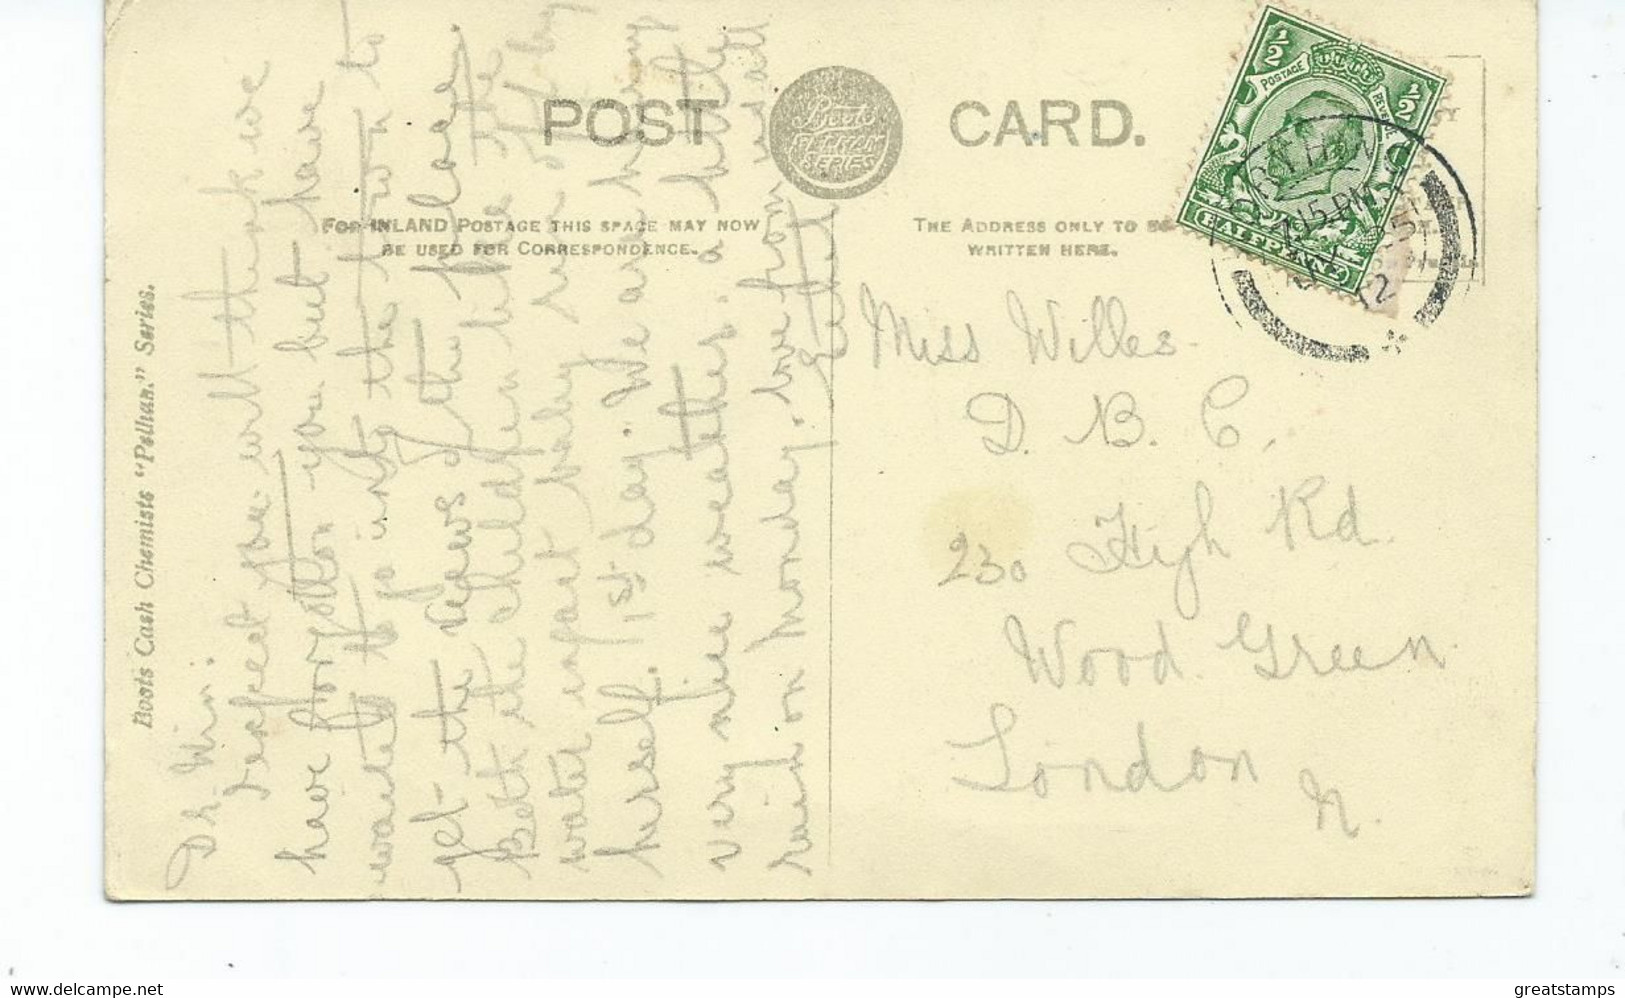 POST CARD.
Boots
PELHAM
SERIES
FOR INLAND POSTAGE THIS SPACE MAY NOW
BE USED FOR CORRESPONDENCE.
THE ADDRESS ONLY TO BE
WRITTEN HERE.
Boots Cash Chemists "Pelham" Series.
Dr. Win.
I expect you will think we
have forgotten you but have
waited to go into the town to
get the views of the place.
Both the children like the
water infact baby
herself. 1st day. We are having
very nice weather, a little
rain on Monday. love from us all
Miss Willes
D. B. C.
230 High Rd.
Wood Green
London
N.
½
½
POSTAGE
REVENUE
HALFPENNY
7 15 PM
12
greatstamps
www.delcampe.net